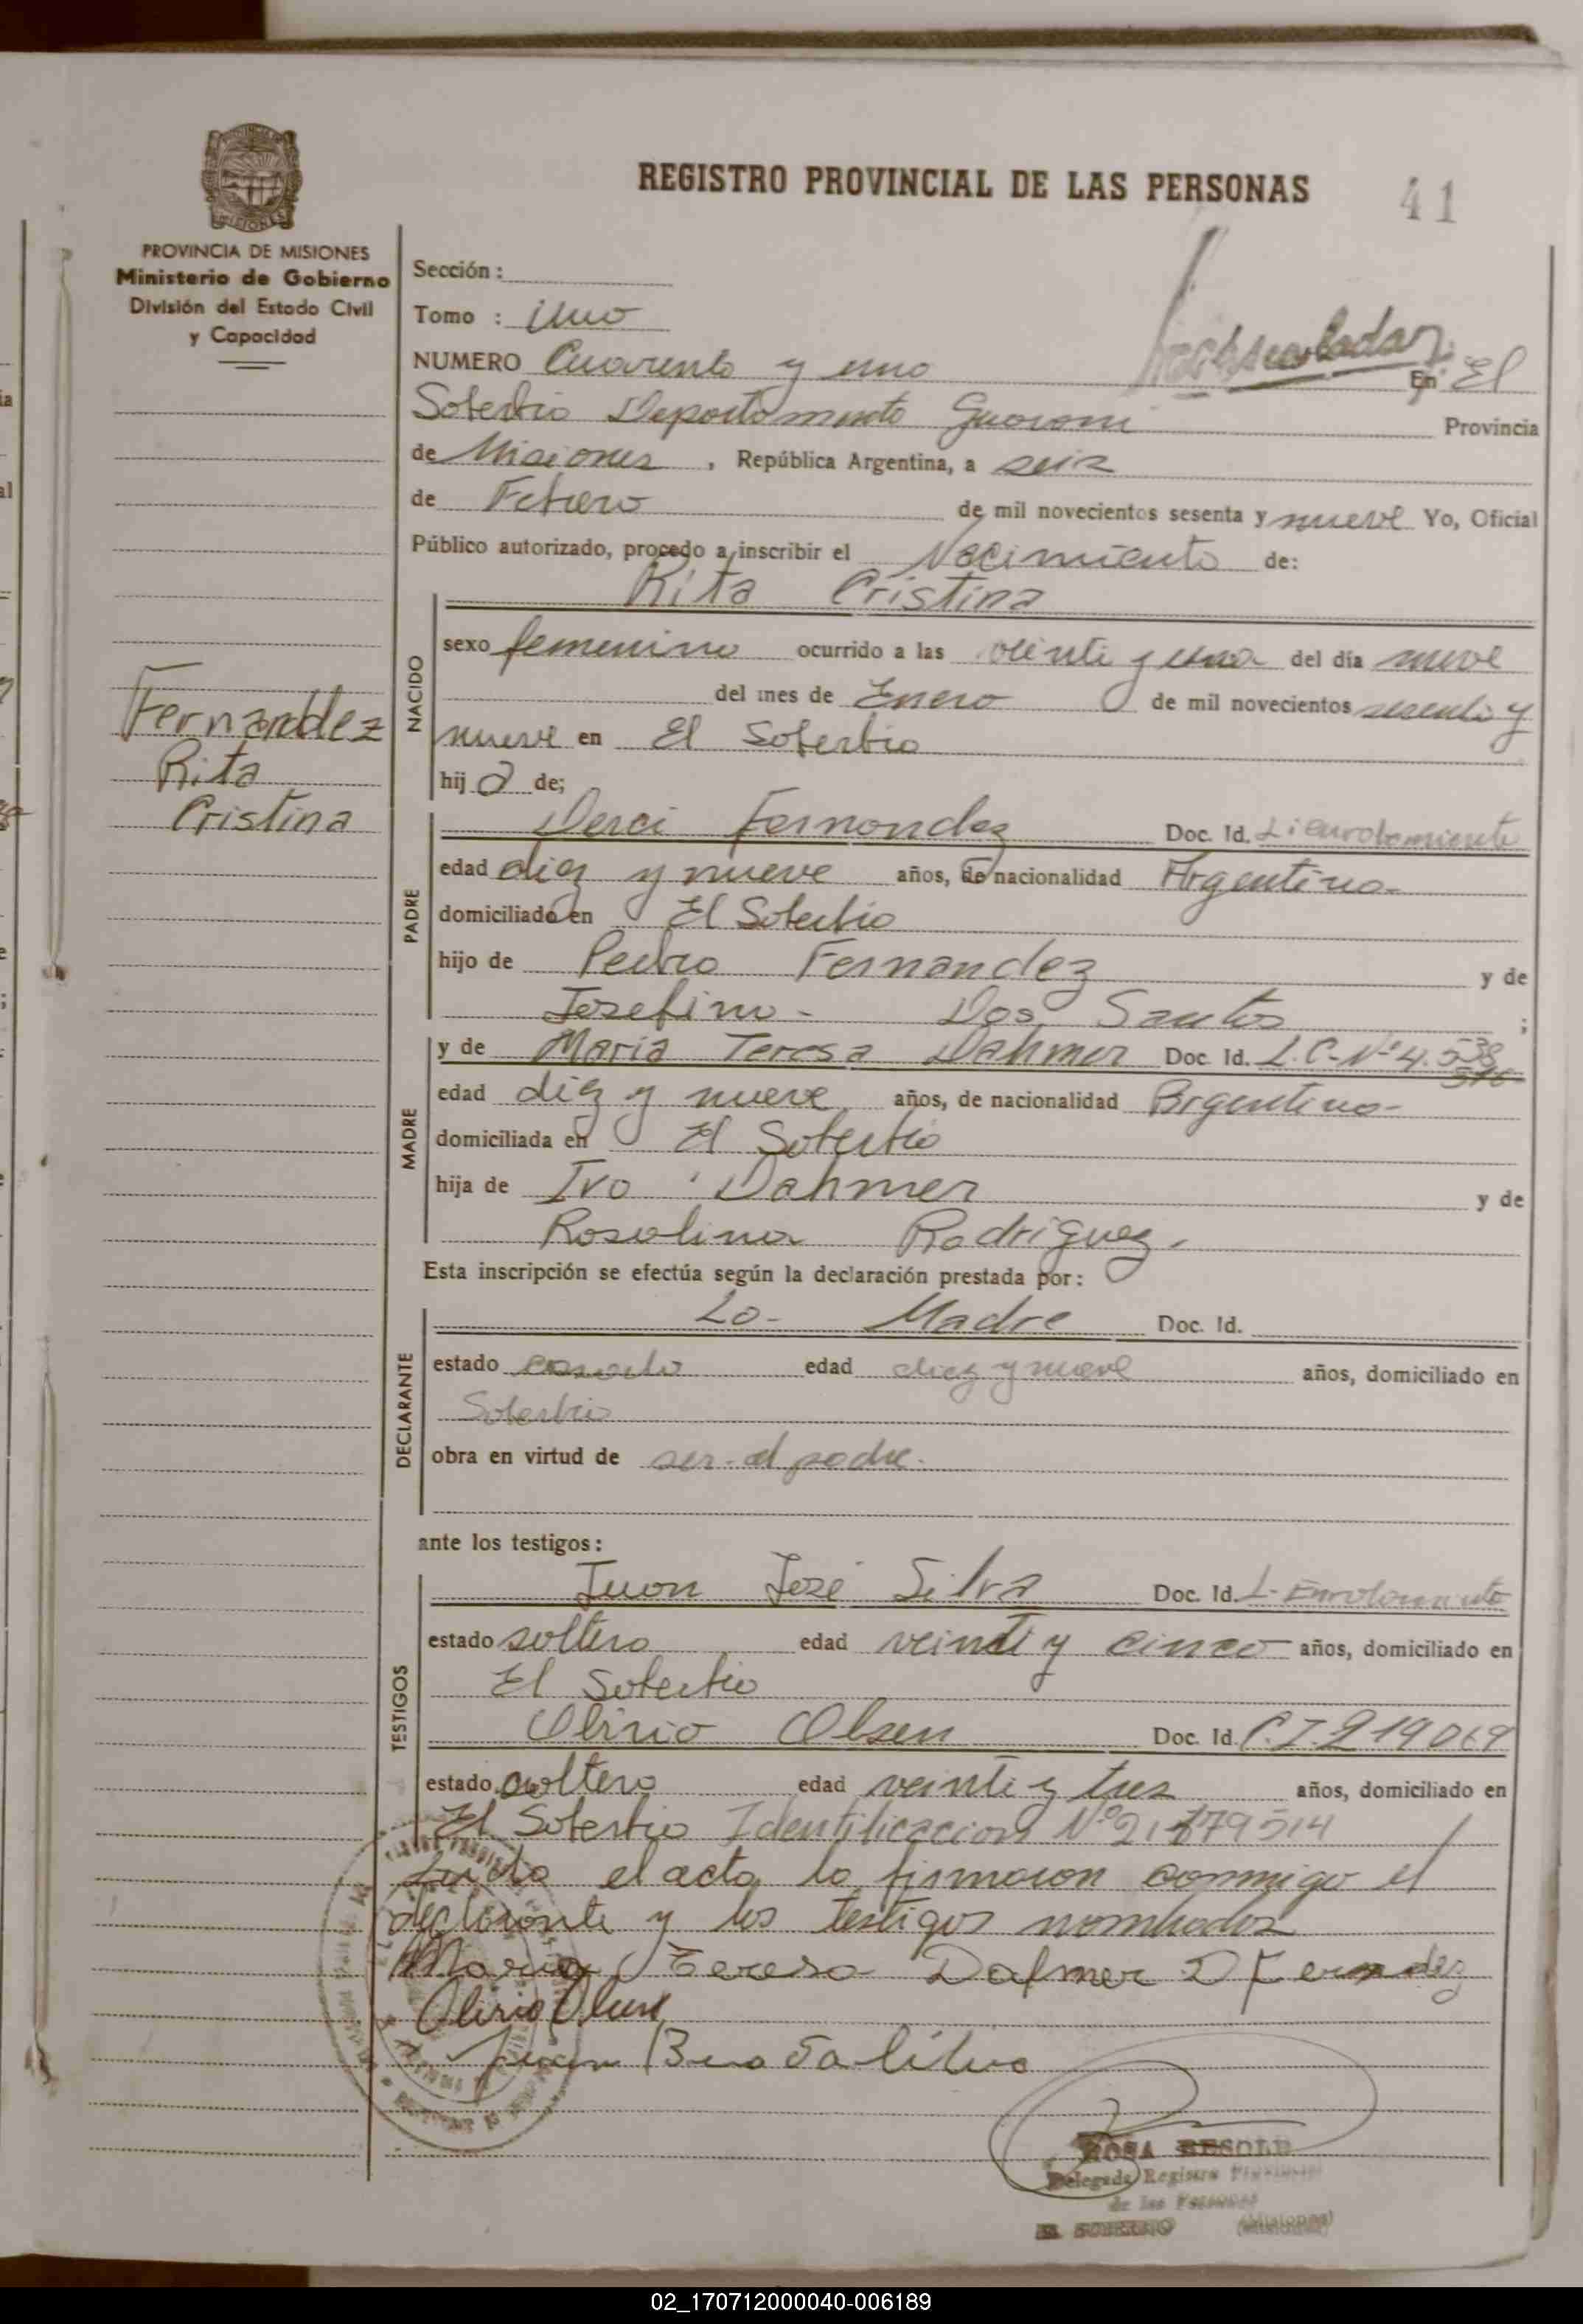 REGISTRO PROVINCIAL DE LAS PERSONAS
41
PROVINCIA DE MISIONES
Ministerio de Gobierno
División del Estado Civil
y Capacidad
Sección :
Tomo : uno
NUMERO Cuarenta y uno En El
Soberbio Departamento Guarani Provincia
de Misiones , República Argentina, a seis
de Febrero de mil novecientos sesenta y nueve Yo, Oficial
Público autorizado, procedo a inscribir el Nacimiento de:
Rita Cristina
NACIDO
sexo femenino ocurrido a las veinte y una del día nueve
del mes de Enero de mil novecientos sesenta y
nueve en El Soberbio
hij a de;
Fernanddez
Rita
Cristina
PADRE
Derci Fernandez Doc. Id. Li enrolamiento
edad diez y nueve años, de nacionalidad Argentina-
domiciliado en El Soberbio
hijo de Pedro Fernandez y de
Josefina- Dos Santos ;
MADRE
y de Maria Teresa Dahmer Doc. Id. L.C-Nº4.538
516
edad diez y nueve años, de nacionalidad Argentina-
domiciliada en El Soberbio
hija de Ivo Dahmer y de
Rosalina Rodriguez.
Esta inscripción se efectúa según la declaración prestada por:
DECLARANTE
La- Madre Doc. Id.
estado casado edad diez y nueve años, domiciliado en
Soberbio
obra en virtud de ser-el padre.
ante los testigos:
TESTIGOS
Juan José Silva Doc. Id. L- Enrolamiento
estado soltero edad veinti y cinco años, domiciliado en
El Soberbio
Olirio Olsen Doc. Id. C.I.219069
estado soltero edad veinte y tres años, domiciliado en
El Soberbio Identificacion Nº
el acta la firmaron conmigo el
declarante y los testigos nombrados
Maria Teresa Dahmer D Fernandez
Olirio Olsen
Juan
ROSA
Delegada Registro Provincial
de las Personas
EL SOBERBIO (Misiones)
02_170712000040-006189